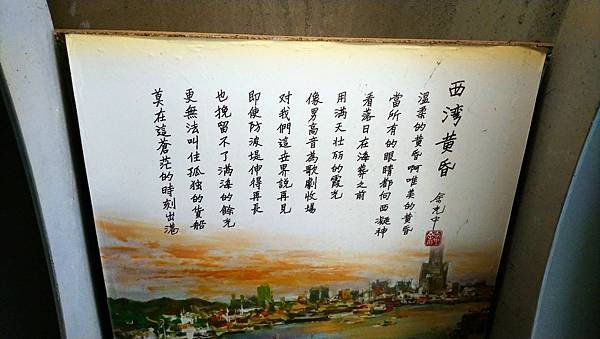 西湾黄昏
余光中
溫柔的黄昏啊唯美的黄昏
當所有的眼睛都向西凝神
看落日在海葬之前
用满天壮丽的霞光
像男高音為歌劇收場
对我們這世界說再見
即使防波堤伸得再長
也挽留不了满海的餘光
更無法叫住孤独的货船
莫在這蒼茫的時刻出港